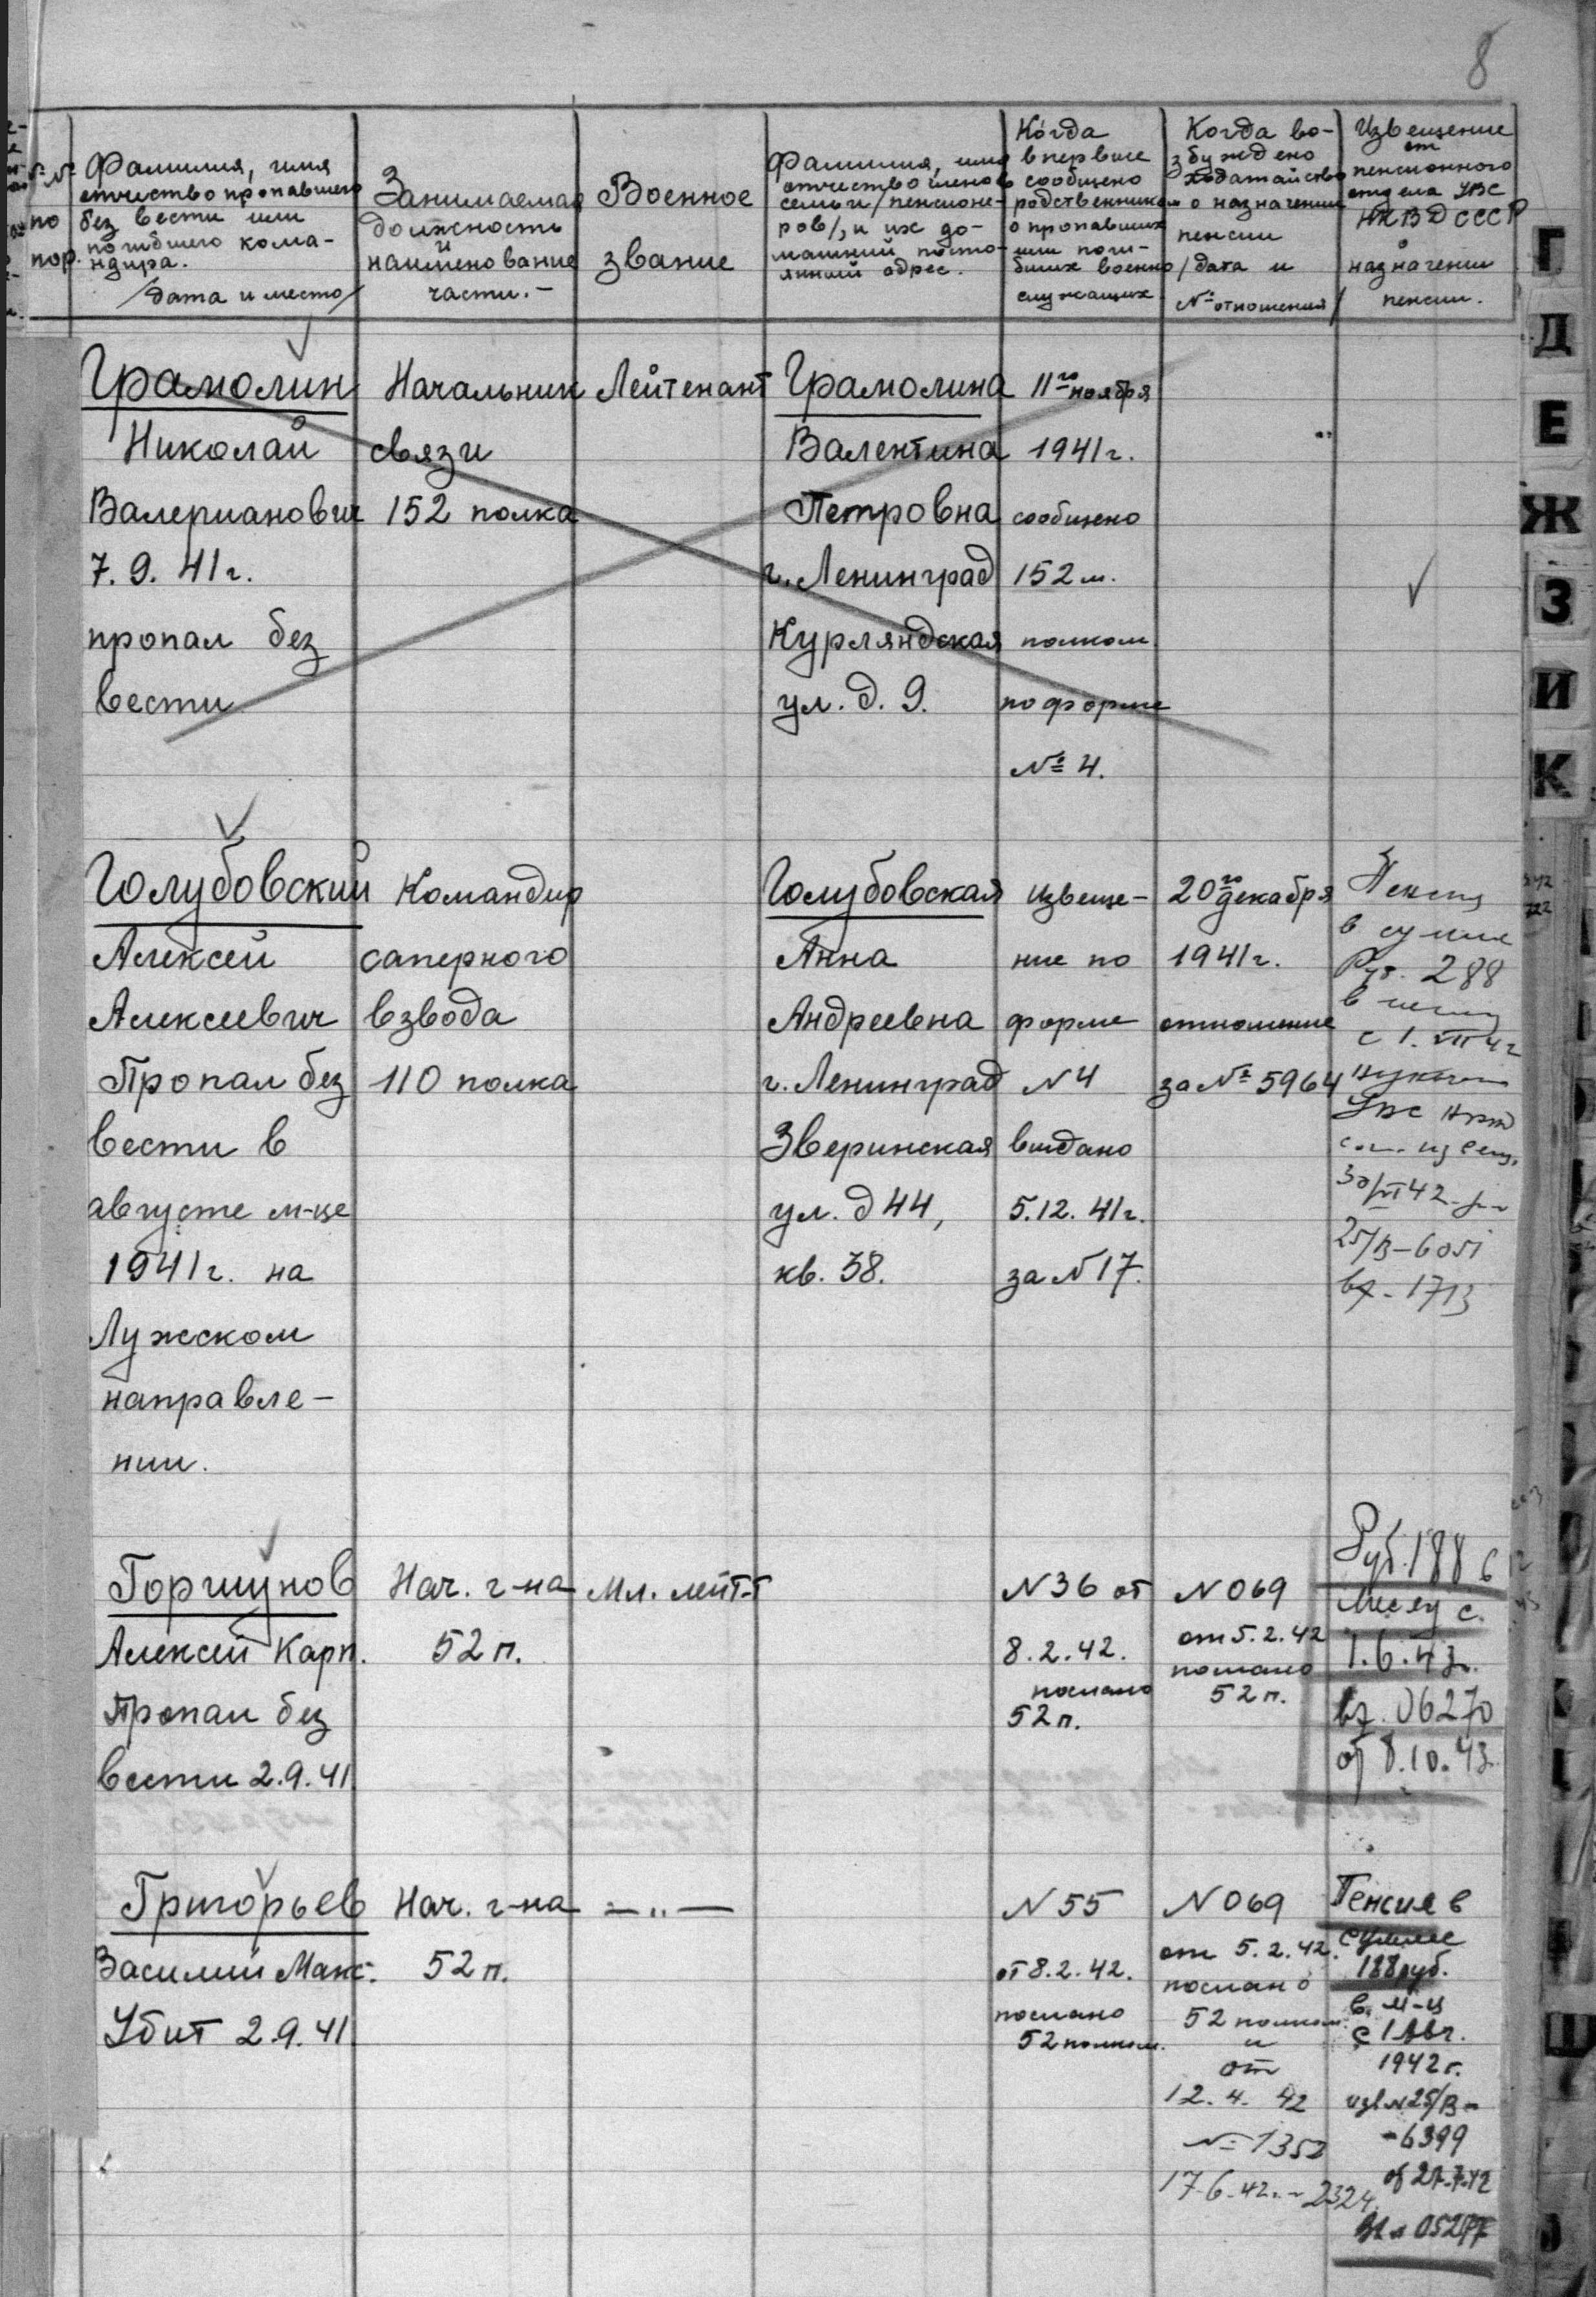 8
№№
по
пор.
Фамилия, имя
отчество пропавшего
без вести или
погибшего кома-
ндира.
/дата и место/
Занимаемая
должность
и
наименование
части.-
Военное
звание
Фамилия, имя
отчество членов
семьи/пенсионе-
ров/, и их до-
машний посто-
янный адрес.
Когда
впервые
сообщено
родственникам
о пропавших
или поги-
бших военно
служащих
Когда во-
збуждено
ходатайство
о назначении
пенсии
/дата и
№ отношения/
Извещение
от
пенсионного
отдела УВС
НКВД СССР
о
назначении
пенсии.
Грамолин
Николай
Валерианович
7.9.41г.
пропал без
вести
Начальник
связи
152 полка
Лейтенант
Грамолина
Валентина
Петровна
г. Ленинград
Курляндская
ул. д. 9.
11го ноября
1941г.
сообщено
152 м.
полком
по форме
№ 4.
Голубовский
Алексей
Алексеевич
Пропал без
вести в
августе м-це
1941г. на
Лужском
направле-
нии.
Командир
саперного
взвода
110 полка
Голубовская
Анна
Андреевна
г. Ленинград
Зверинская
ул. д 44,
кв. 38.
Извеще-
ние по
форме
N 4
выдано
5.12.41г.
за N 17.
20го декабря
1941г.
отношение
за № 5964
Пенсия
в сумме
Руб. 288
в
УВС
25/В-6051
вх-1713
Горшунов
Алексей Карп.
Пропал без
вести 2.9.41
Нач. г-на
52 п.
Мл. лейт-т
N 36 от
8.2.42.
послано
52 п.
N 069
от 5.2.42
послано
52 п.
Руб. 188 в
месяц с.
1.6.43г.
вх. 06270
от 8.10.43
Григорьев
Василий Макс.
Убит 2.9.41
Нач. г-на
52 п.
—„—
N 55
от 8.2.42.
послано
52 полком.
N 069
от 5.2.42.
послано
52 полком
и
от
12.4.42
№ 1352
17.6.42.-2324.
Пенсия в
сумме
188 руб.
в м-ц
с 1 Авг.
1942г.
изв N 25/В-
-6399
от 27.7.42
Г
Д
Е
Ж
З
И
К